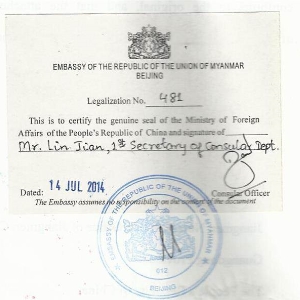 EMBASSY OF THE REPUBLIC OF THE UNION OF MYANMAR
BEIJING
Legalization No. 481
This is to certify the genuine seal of the Ministry of Foreign
Affairs of the People's Republic of China and signature of
Mr. Lin Jian, 1st Secretary of Consular Dept.
Dated: 14 JUL 2014
Consular Officer
The Embassy assumes no responsibility on the content of the document
EMBASSY OF THE REPUBLIC OF THE UNION OF MYANMAR
612
BEIJING